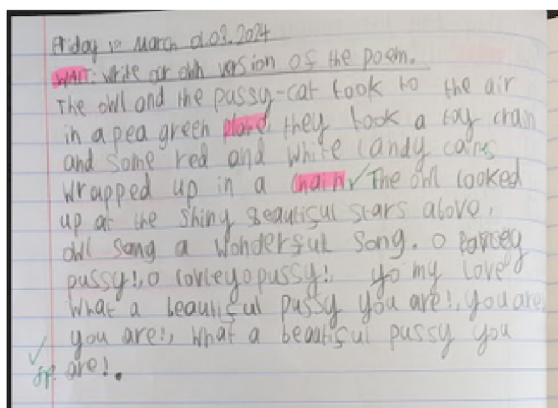 Friday 1st March 01.03.2024
WALT: write our own version of the poem.
The owl and the pussy-cat took to the air
in a pea green they took a toy train
and some red and white candy cans
wrapped up in a The owl looked
up at the shiny beautiful stars above,
owl sang a wonderful song. O
pussy!, o pussy!, my love
What a beautiful pussy you are!, you are,
you are!, what a beautiful pussy you
are!.